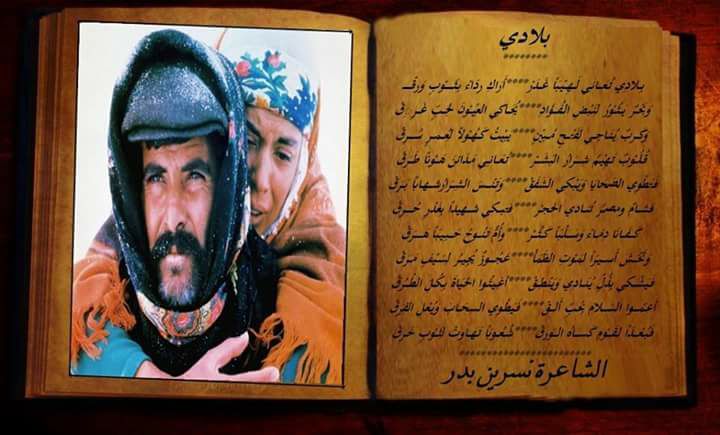 بلادي
********
بلادي تعاني لهيباً غدر****أراك رداء بثوب ورق
وبحر يثور لنبض الفؤاد****يحاكي العيون لحب غرق
وكرب يناجي لفتح مبين****يبيت كهولاً لعمر سرق
قلوب تهيم شرار البشر****تعاني مذاق هوناً طرق
فتطوي الضحايا ويبكي الشفق****وتنس الشرار شهاباً برق
فشام ومصر تنادي الحجر****فتبكي شهيداً بغدر حرق
كفانا دماء وسلباً كثر****وأم تنوح حبيباً هرق
وتخش أسيراً لموت الظمأ****عجوز يجير لسيف مرق
فيشكي بذل ينادي وينطق****أغيثوا الحياة بكل الطرق
أعيدوا السلام بحب ألق****فيطوي السحاب ويعل الفرق
فبعداً لقوم كساه الورق****شعوباً تهاوت لثوب خرق
********************
الشاعرة نسرين بدر